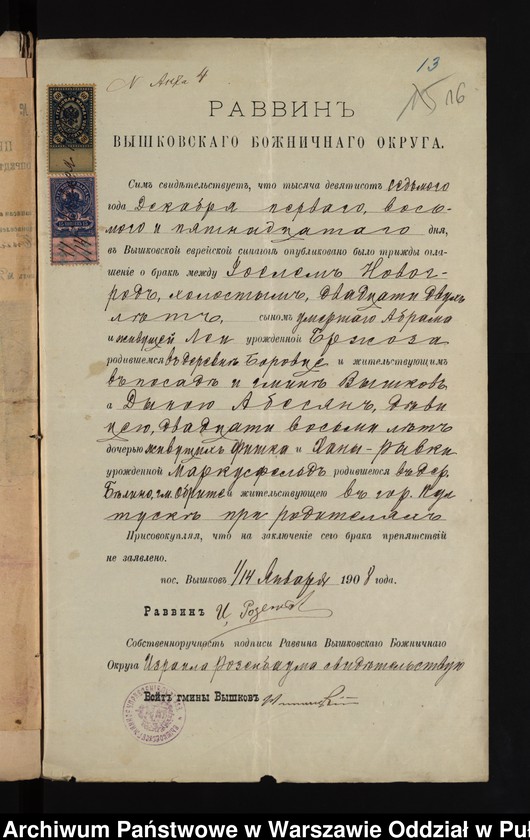 N Акта 4
13
15 16
РАВВИНЪ
ВЫШКОВСКАГО БОЖНИЧНАГО ОКРУГА.
Симъ свидѣтельствуетъ, что тысяча девятисотъ седьмого
года Декабря перваго, вось-
мого и пятнадцатаго дня,
въ Вышковской еврейской синагогѣ опубликовано было трижды огла-
шеніе о бракѣ между Іоселемъ Новог-
родъ, холостымъ, двадцати двухъ
лѣтъ, сыномъ умершаго Абрама
и живущей Леи урожденной Бржоза
родившемся въ деревнѣ и жительствующимъ
въ посадѣ и гминѣ Вышковъ
а Диною Абесянъ, дѣви-
цею, двадцати восьми лѣтъ
дочерью живущихъ и Ханы-Рывки
урожденной Маркусфельдъ родившеюся въ дер.
гм. и жительствующею въ гор. Пул-
тускѣ при родителяхъ
Присовокупляя, что на заключеніе сего брака препятствій
не заявлено.
пос. Вышковъ 1/14 Января 1908 года.
Раввинъ И.
Собственноручность подписи Раввина Вышковскаго Божничнаго
Округа Израила Розенбаума свидѣтельствую
Войтъ гмины Вышковъ
Archiwum Państwowe w Warszawie Oddział w Pu